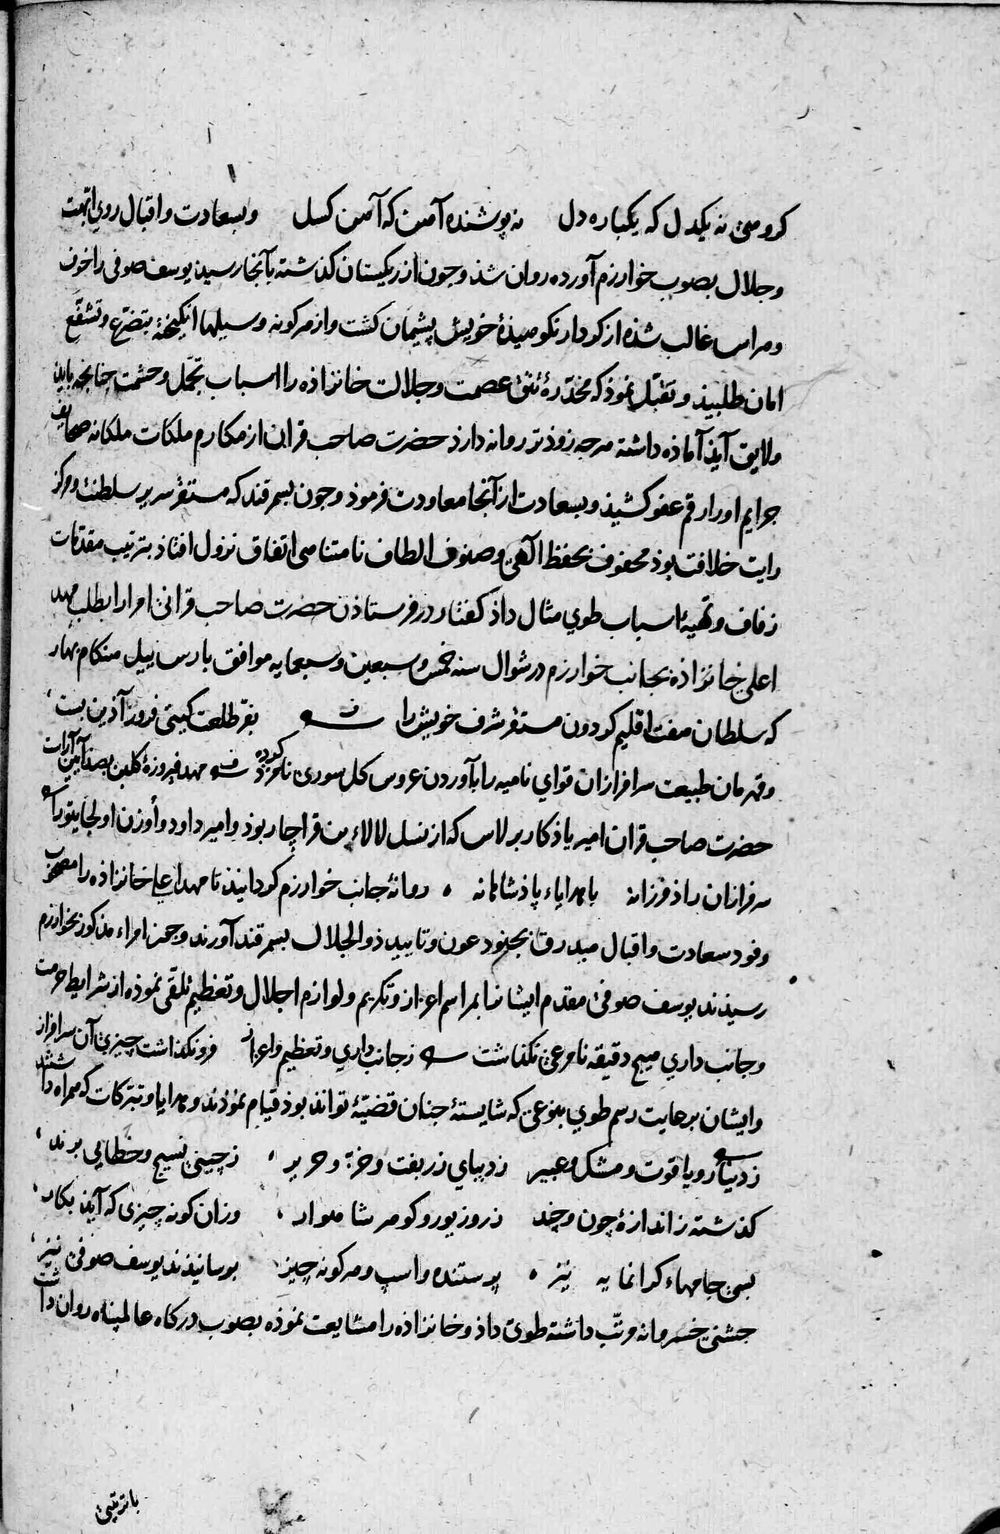 کروهی نه یکدل که یکباره دل نه پوشنده آهن که آهن کسل و بسعادت و اقبال روی ابهت
و جلال بصوب خوارزم آورده روان شذ و جون از ریکستان کذشته بآنجا رسیذ یوسف صوفی را خوف
و هراس غالب شذه از کردار نکوهیذهٔ خویش پشیمان کشت و از هرکونه وسیلها انکیخته بتضرع و تشفع
امان طلبیذ و تقبل نموذ که مخدرهٔ تتق عصمت و جلالت خانزاذه را اسباب تجمل و حشمت جنانجه بایذ
و لایق آیذ آماذه داشته هرجه زوذتر روانه دارذ حضرت صاحب قران از مکارم ملکات ملکانه صحایف
جرایم او را رقم عفو کشیذ و بسعادت از آنجا معاودت فرموذ و جون بسمرقند که مستقر سریر سلطنت و مرکز
رایت خلافت بوذ محفوف بحفظ الهی و صنوف الطاف نامتناهی اتفاق نزول افتاذ بترتیب مقدمات
زفاف و تهیهٔ اسباب طوی مثال داذ کفتار در فرستاذن حضرت صاحب قرانی امرا را بطلب مهد
اعلی خانزاذه بجانب خوارزم در شوال سنه خمس و سبعین و سبعمایه موافق بارس ییل هنکام بهار
که سلطان هفت اقلیم کردون مستقر شرف خویش را بفر طلعت کیتی فروز آذین بست
و قهرمان طبیعت سرافرازان قوای نامیه را بآوردن عروس کل سوری نامزد کرده مهد فیروزهٔ کلبن بصد آیین آراست
حضرت صاحب قران امیر یاذکار برلاس که از نسل لالاء بن قراچار بوذ و امیر داود و أوزن اولجایتو را
سرفرازان راذ فرزانه با هدایاء پاذشاهانه روانهٔ جانب خوارزم کردانیذ تا مهد اعلی خانزاذه را مصحوب
وفود سعادت و اقبال مبدرق بجنود عون و تایید ذو الجلال بسمرقند آورند و جون امراء مذکور بخوارزم
رسیذند یوسف صوفی مقدم ایشانرا بمراسم اعزاز و تکریم و لوازم اجلال و تعظیم تلقی نموذه از شرایط حرمت
و جانب داری هیچ دقیقه نامرعی نکذاشت زجانب داری و تعظیم و اعزاز فرونکذاشت چیزی آن سرافراز
و ایشان برعایت رسم طوی بنوعی که شایستهٔ جنان قضیهٔ تواند بوذ قیام نموذند و هدایا و تبرکات که همراه داشتند
ز دینار و یاقوت و مشک و عبیر ز دیبای زربفت و خز و حریر ز چینی نسیج و خطایی برند
کذشته ز اندازهٔ چون و چند ز روزیور و کوهر شاهوار وزان کونه چیزی که آیذ بکار
بسی جامهاء کرانمایه نیز پرستنده و اسپ و هرکونه چیز برسانیذند یوسف صوفی نیز
جشنی خسروانه مرتب داشته طوی داذ و خانزاذه را مشایعت نموذه بصوب درکاه عالمپناه روان داشت
باترتیبی